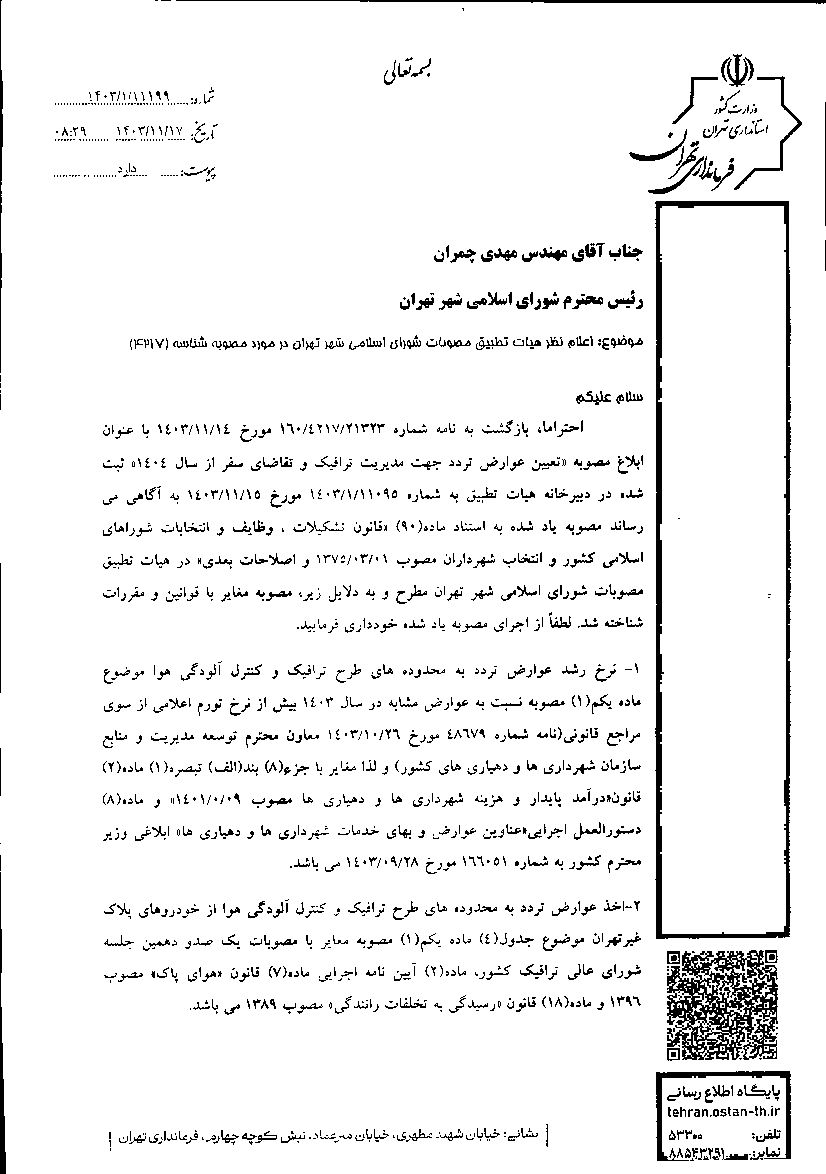 بسمه تعالی
وزارت کشور
استانداری تهران
فرمانداری تهران
شماره: ۱۴۰۳/۱/۱۱۱۹۹
تاریخ: ۱۴۰۳/۱۱/۱۷ ۰۸:۲۹
پیوست: دارد
جناب آقای مهندس مهدی چمران
رئیس محترم شورای اسلامی شهر تهران
موضوع: اعلام نظر هیات تطبیق مصوبات شورای اسلامی شهر تهران در مورد مصوبه شناسه (۴۲۱۷)
سلام علیکم
احتراما، بازگشت به نامه شماره ۱۶۰/٤۲۱۷/۲۱۳۲۳ مورخ ۱٤۰۳/۱۱/۱٤ با عنوان
ابلاغ مصوبه «تعیین عوارض تردد جهت مدیریت ترافیک و تقاضای سفر از سال ۱٤۰٤» ثبت
شده در دبیرخانه هیات تطبیق به شماره ۱٤۰۳/۱/۱۱۰۹۵ مورخ ۱٤۰۳/۱۱/۱۵ به آگاهی می
رساند مصوبه یاد شده به استناد ماده(۹۰) «قانون تشکیلات ، وظایف و انتخابات شوراهای
اسلامی کشور و انتخاب شهرداران مصوب ۱۳۷۵/۰۳/۰۱ و اصلاحات بعدی» در هیات تطبیق
مصوبات شورای اسلامی شهر تهران مطرح و به دلایل زیر، مصوبه مغایر با قوانین و مقررات
شناخته شد. لطفاً از اجرای مصوبه یاد شده خودداری فرمایید.
۱- نرخ رشد عوارض تردد به محدوده های طرح ترافیک و کنترل آلودگی هوا موضوع
ماده یکم(۱) مصوبه نسبت به عوارض مشابه در سال ۱٤۰۳ بیش از نرخ تورم اعلامی از سوی
مراجع قانونی(نامه شماره ٤۸٦۷۹ مورخ ۱٤۰۳/۱۰/۲٦ معاون محترم توسعه مدیریت و منابع
سازمان شهرداری ها و دهیاری های کشور) و لذا مغایر با جزء(۸) بند(الف) تبصره(۱) ماده(۲)
قانون«درآمد پایدار و هزینه شهرداری ها و دهیاری ها مصوب ۱٤۰۱/۰/۰۹» و ماده(۸)
دستورالعمل اجرایی«عناوین عوارض و بهای خدمات شهرداری ها و دهیاری ها» ابلاغی وزیر
محترم کشور به شماره ۱٦٦۰۵۱ مورخ ۱٤۰۳/۰۹/۲۸ می باشد.
۲-اخذ عوارض تردد به محدوده های طرح ترافیک و کنترل آلودگی هوا از خودروهای پلاک
غیرتهران موضوع جدول(٤) ماده یکم(۱) مصوبه مغایر با مصوبات یک صدو دهمین جلسه
شورای عالی ترافیک کشور، ماده(۲) آیین نامه اجرایی ماده(۷) قانون «هوای پاک» مصوب
۱۳۹٦ و ماده(۱۸) قانون «رسیدگی به تخلفات رانندگی» مصوب ۱۳۸۹ می باشد.
پایگاه اطلاع رسانی
tehran.ostan-th.ir
تلفن: ۵۳۳۰۰
نمابر: ۸۸۵۴۳۲۹۱
نشانی: خیابان شهید مطهری، خیابان میرعماد، نبش کوچه چهارم، فرمانداری تهران